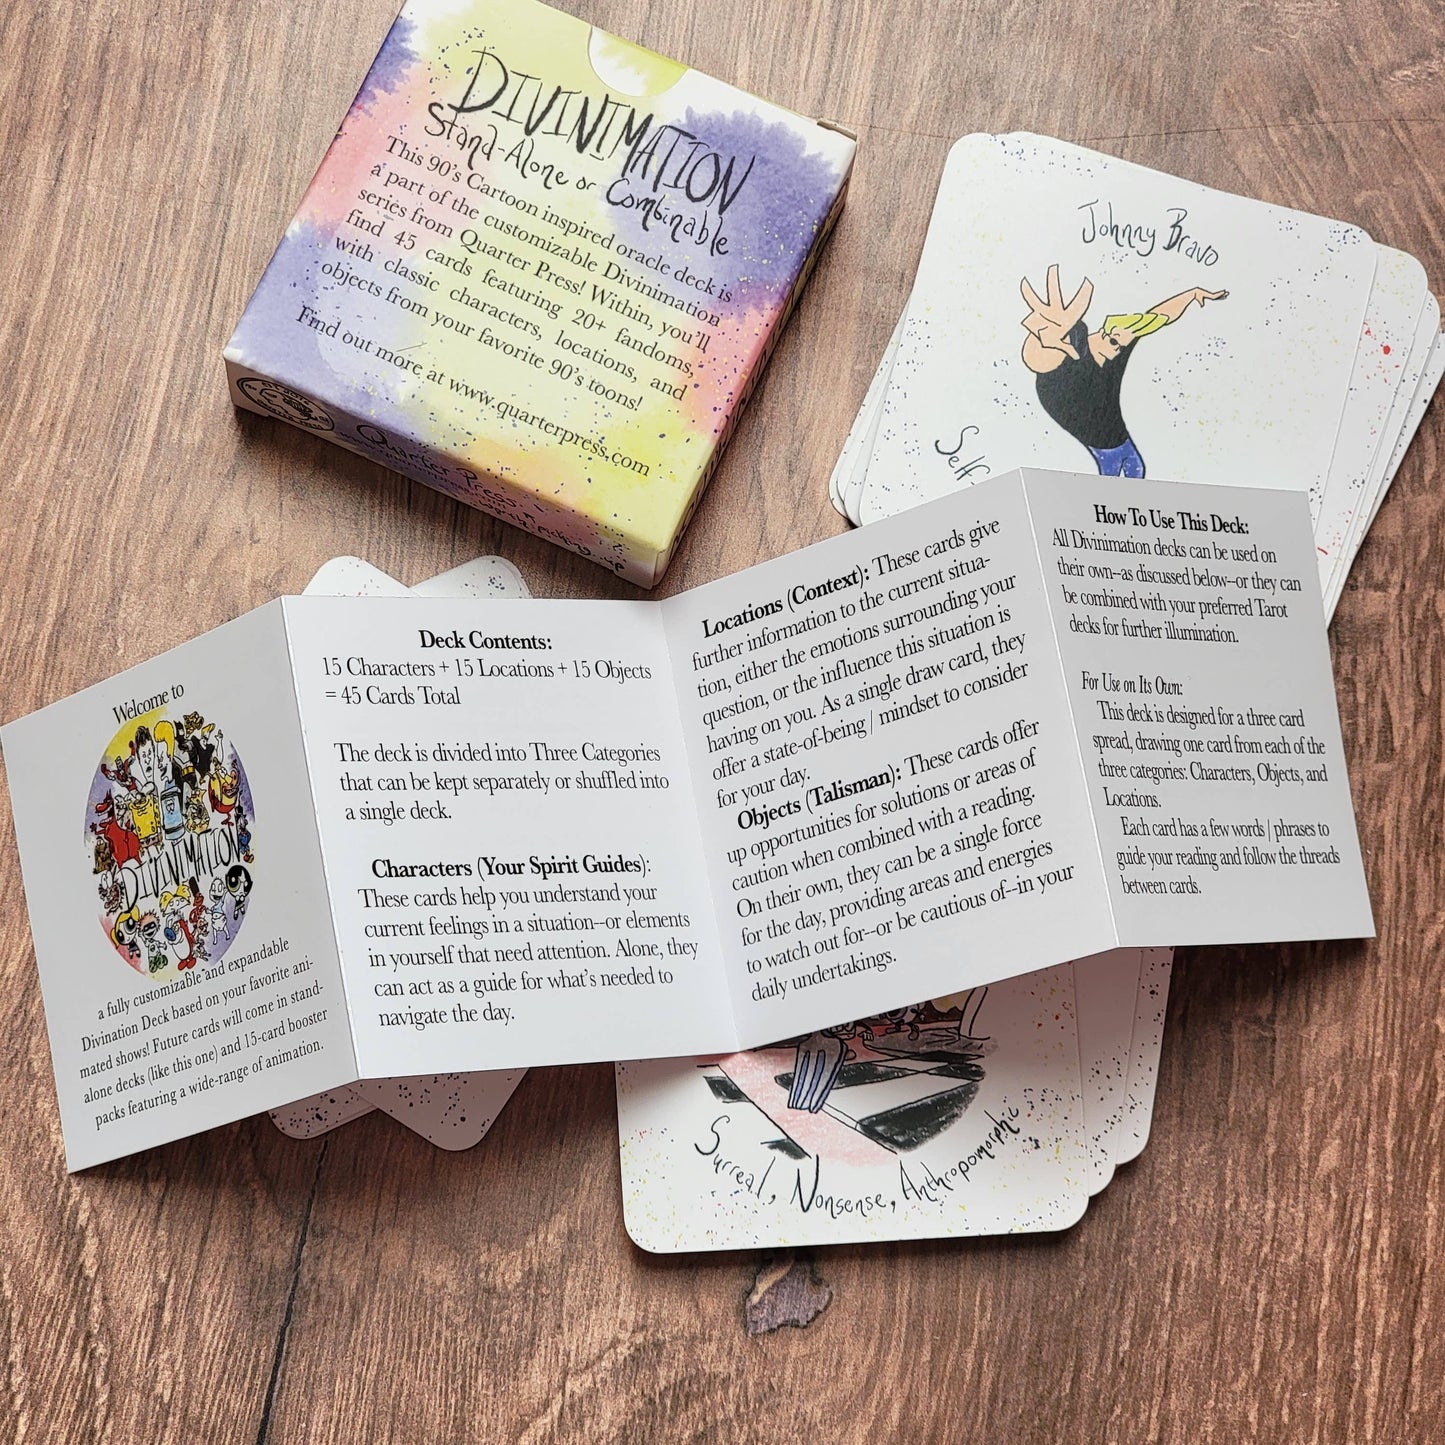 DIVINIMATION
Stand-Alone or Combinable
This 90's Cartoon inspired oracle deck is
a part of the customizable Divinimation
series from Quarter Press! Within, you'll
find 45 cards featuring 20+ fandoms,
with classic characters, locations, and
objects from your favorite 90's toons!
Find out more at www.quarterpress.com
Quarter Press
Johnny Bravo
Self
Welcome to
DIVINIMATION
a fully customizable and expandable
Divination Deck based on your favorite ani-
mated shows! Future cards will come in stand-
alone decks (like this one) and 15-card booster
packs featuring a wide-range of animation.
Deck Contents:
15 Characters + 15 Locations + 15 Objects
= 45 Cards Total
The deck is divided into Three Categories
that can be kept separately or shuffled into
a single deck.
Characters (Your Spirit Guides):
These cards help you understand your
current feelings in a situation--or elements
in yourself that need attention. Alone, they
can act as a guide for what's needed to
navigate the day.
Locations (Context): These cards give
further information to the current situa-
tion, either the emotions surrounding your
question, or the influence this situation is
having on you. As a single draw card, they
offer a state-of-being / mindset to consider
for your day.
Objects (Talisman): These cards offer
up opportunities for solutions or areas of
caution when combined with a reading.
On their own, they can be a single force
for the day, providing areas and energies
to watch out for--or be cautious of--in your
daily undertakings.
How To Use This Deck:
All Divinimation decks can be used on
their own--as discussed below--or they can
be combined with your preferred Tarot
decks for further illumination.
For Use on Its Own:
This deck is designed for a three card
spread, drawing one card from each of the
three categories: Characters, Objects, and
Locations.
Each card has a few words / phrases to
guide your reading and follow the threads
between cards.
Surreal, Nonsense, Anthropomorphic